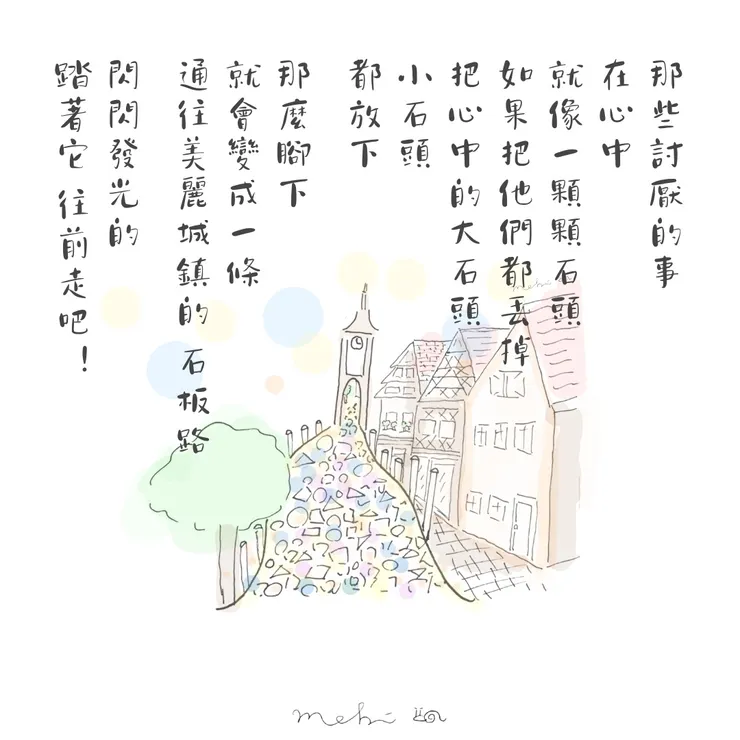 那些討厭的事
在心中
就像一顆顆石頭
如果把他們都丟掉
把心中的大石頭
小石頭
都放下
那麼腳下
就會變成一條
通往美麗城鎮的 石板路
閃閃發光的
踏著它 往前走吧！
mehi